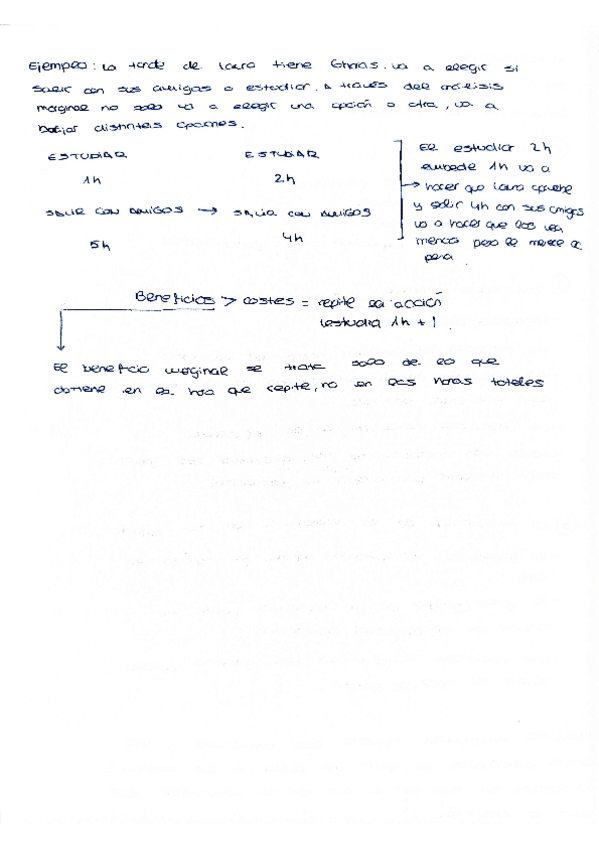 Ejemplo: La tarde de Laura tiene 6horas. Va a elegir si
salir con sus amigas o estudiar. A través del análisis
marginal no solo va a elegir una opción o otra, va a
barajar distintas opciones.
ESTUDIAR ESTUDIAR
1h 2h
SALIR CON AMIGOS → SALIR CON AMIGOS
5h 4h
El estudiar 2h
envede 1h va a
hacer que Laura apruebe
y salir 4h con sus amigos
va a hacer que los vea
menos pero le merece la
pena.
Beneficios > costes = repite la acción
(estudia 1h + 1
El beneficio marginal se trata solo de lo que
obtiene en la hora que repite, no en las horas totales